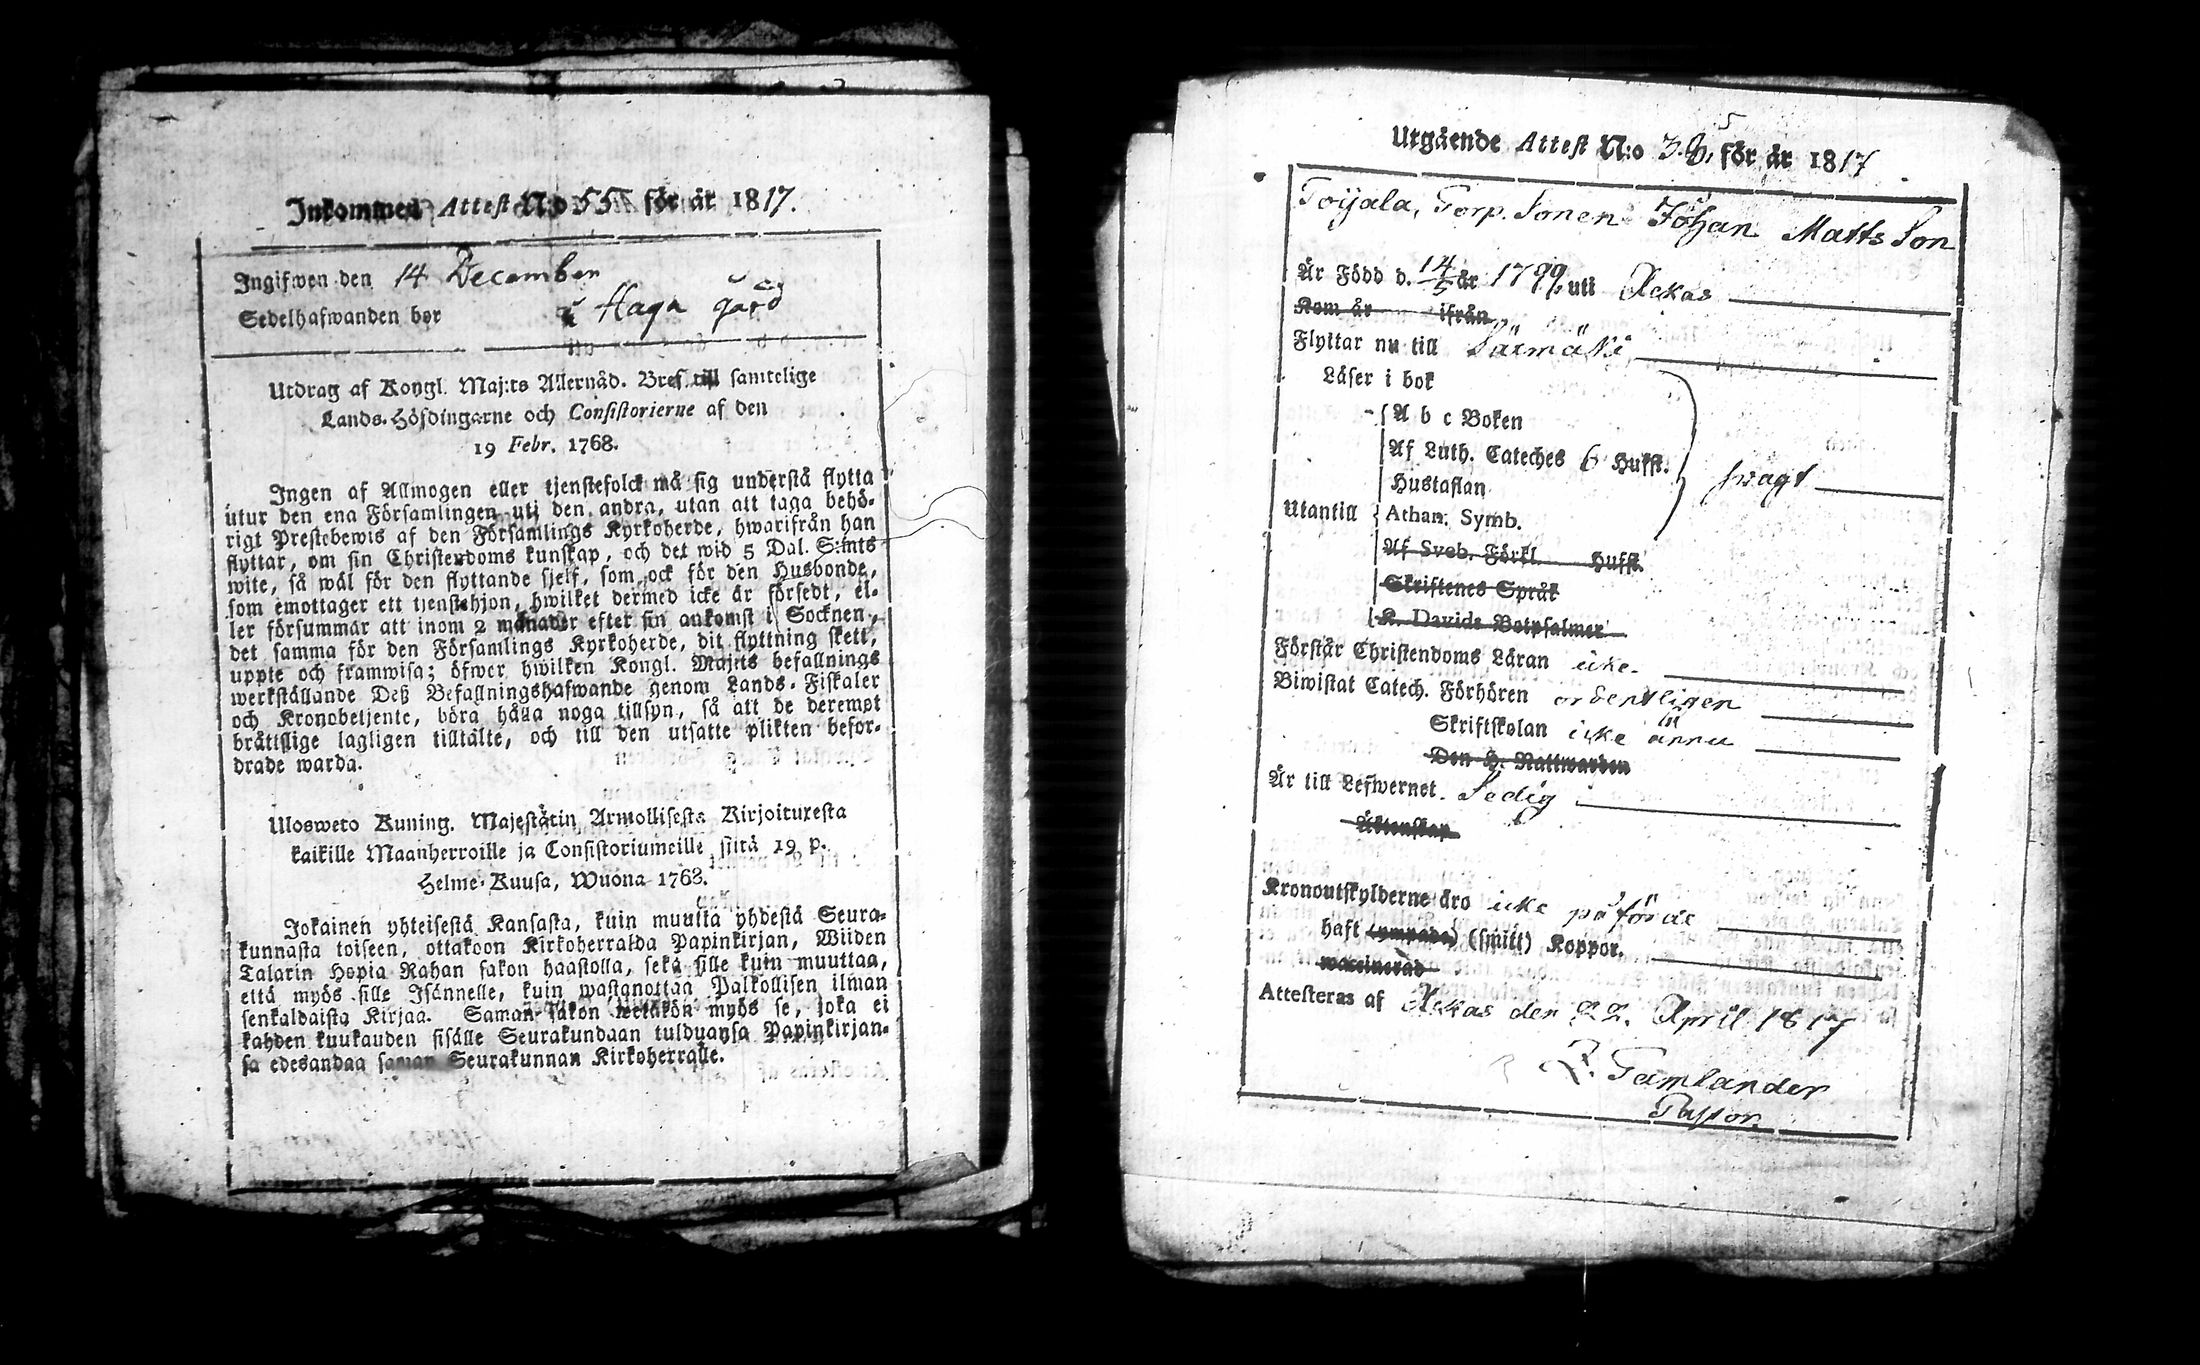 Inkommed Attest N:o 55 för år 1817.
Ingifwen den 14 December
Sedelhafwanden bor i Haga gård
Utdrag af Kongl. Maj:ts Allernåd. Bref till samtelige
Lands-Höfdingarne och Consistorierne af den
19 Febr. 1768.
Ingen af Allmogen eller tjenstefolck må sig understå flytta
utur den ena Församlingen uti den andra, utan att taga behö-
rigt Prestebewis af den Församlings Kyrkoherde, hwarifrån han
flyttar, om sin Christendoms kunskap, och det wid 5 Dal. S:mts
wite, så wäl för den flyttande sjelf, som ock för den Husbonde,
som emottager ett tjenstehjon, hwilket dermed icke är försedt, el-
ler försummar att inom 2 månader efter sin ankomst i Socknen,
det samma för den Församlings Kyrkoherde, dit flyttning skett,
uppte och framwisa; öfwer hwilken Kongl. Maj:ts befallnings
werkställande Deß Befallningshafwande genom Lands-Fiskaler
och Kronobetjente, böra hålla noga tillsyn, så att de deremot
bråttslige lagligen tilltalte, och till den utsatte plikten befor-
drade warda.
Ulosweto Kuning. Majestätin Armollisesta Kirjoituxesta
kaikille Maanherroille ja Consistoriumeille siitä 19 p.
Helme-Kuusa, Wuona 1768.
Jokainen yhteisestä Kansasta, kuin muutta yhdestä Seura-
kunnasta toiseen, ottakoon Kirkoherralda Papinkirjan, Wiiden
Talarin Hopia Rahan sakon haastolla, sekä sille kuin muuttaa,
että myös sille Isännelle, kuin wastanottaa Palkollisen ilman
senkaldaista Kirjaa. Saman sakon wetäkön myös se, joka ei
kahden kuukauden sisälle Seurakundaan tulduansa Papinkirjan-
sa edesandaa saman Seurakunnan Kirkoherralle.
Utgående Attest N:o 35 för år 1817
Toijala, Torp. Sonen Johan Matts Son
Är Född d. 14/5 år 1799, uti Ackas
Kom år ifrån
Flyttar nu till Sääxmäki
Läser i bok
A b c Boken
Af Luth. Cateches 6 Hufst. swagt
Hustaflan
Utantill Athan. Symb.
Af Sveb. Förkl. Hufst.
Skriftenes Språk
K. Davids Botpsalmer
Förstår Christendoms Läran icke
Biwistat Catech. Förhören ordentligen
Skriftskolan icke ännu
Den H. Nattwarden
Är till Lefwernet Sedig
Äktenskap
Kronoutskylderne äro icke påförde
haft (ympade) (smitt) Koppor.
waccinerad
Attesteras af Ackas den 22. April 1817
Gamlander
Pastor